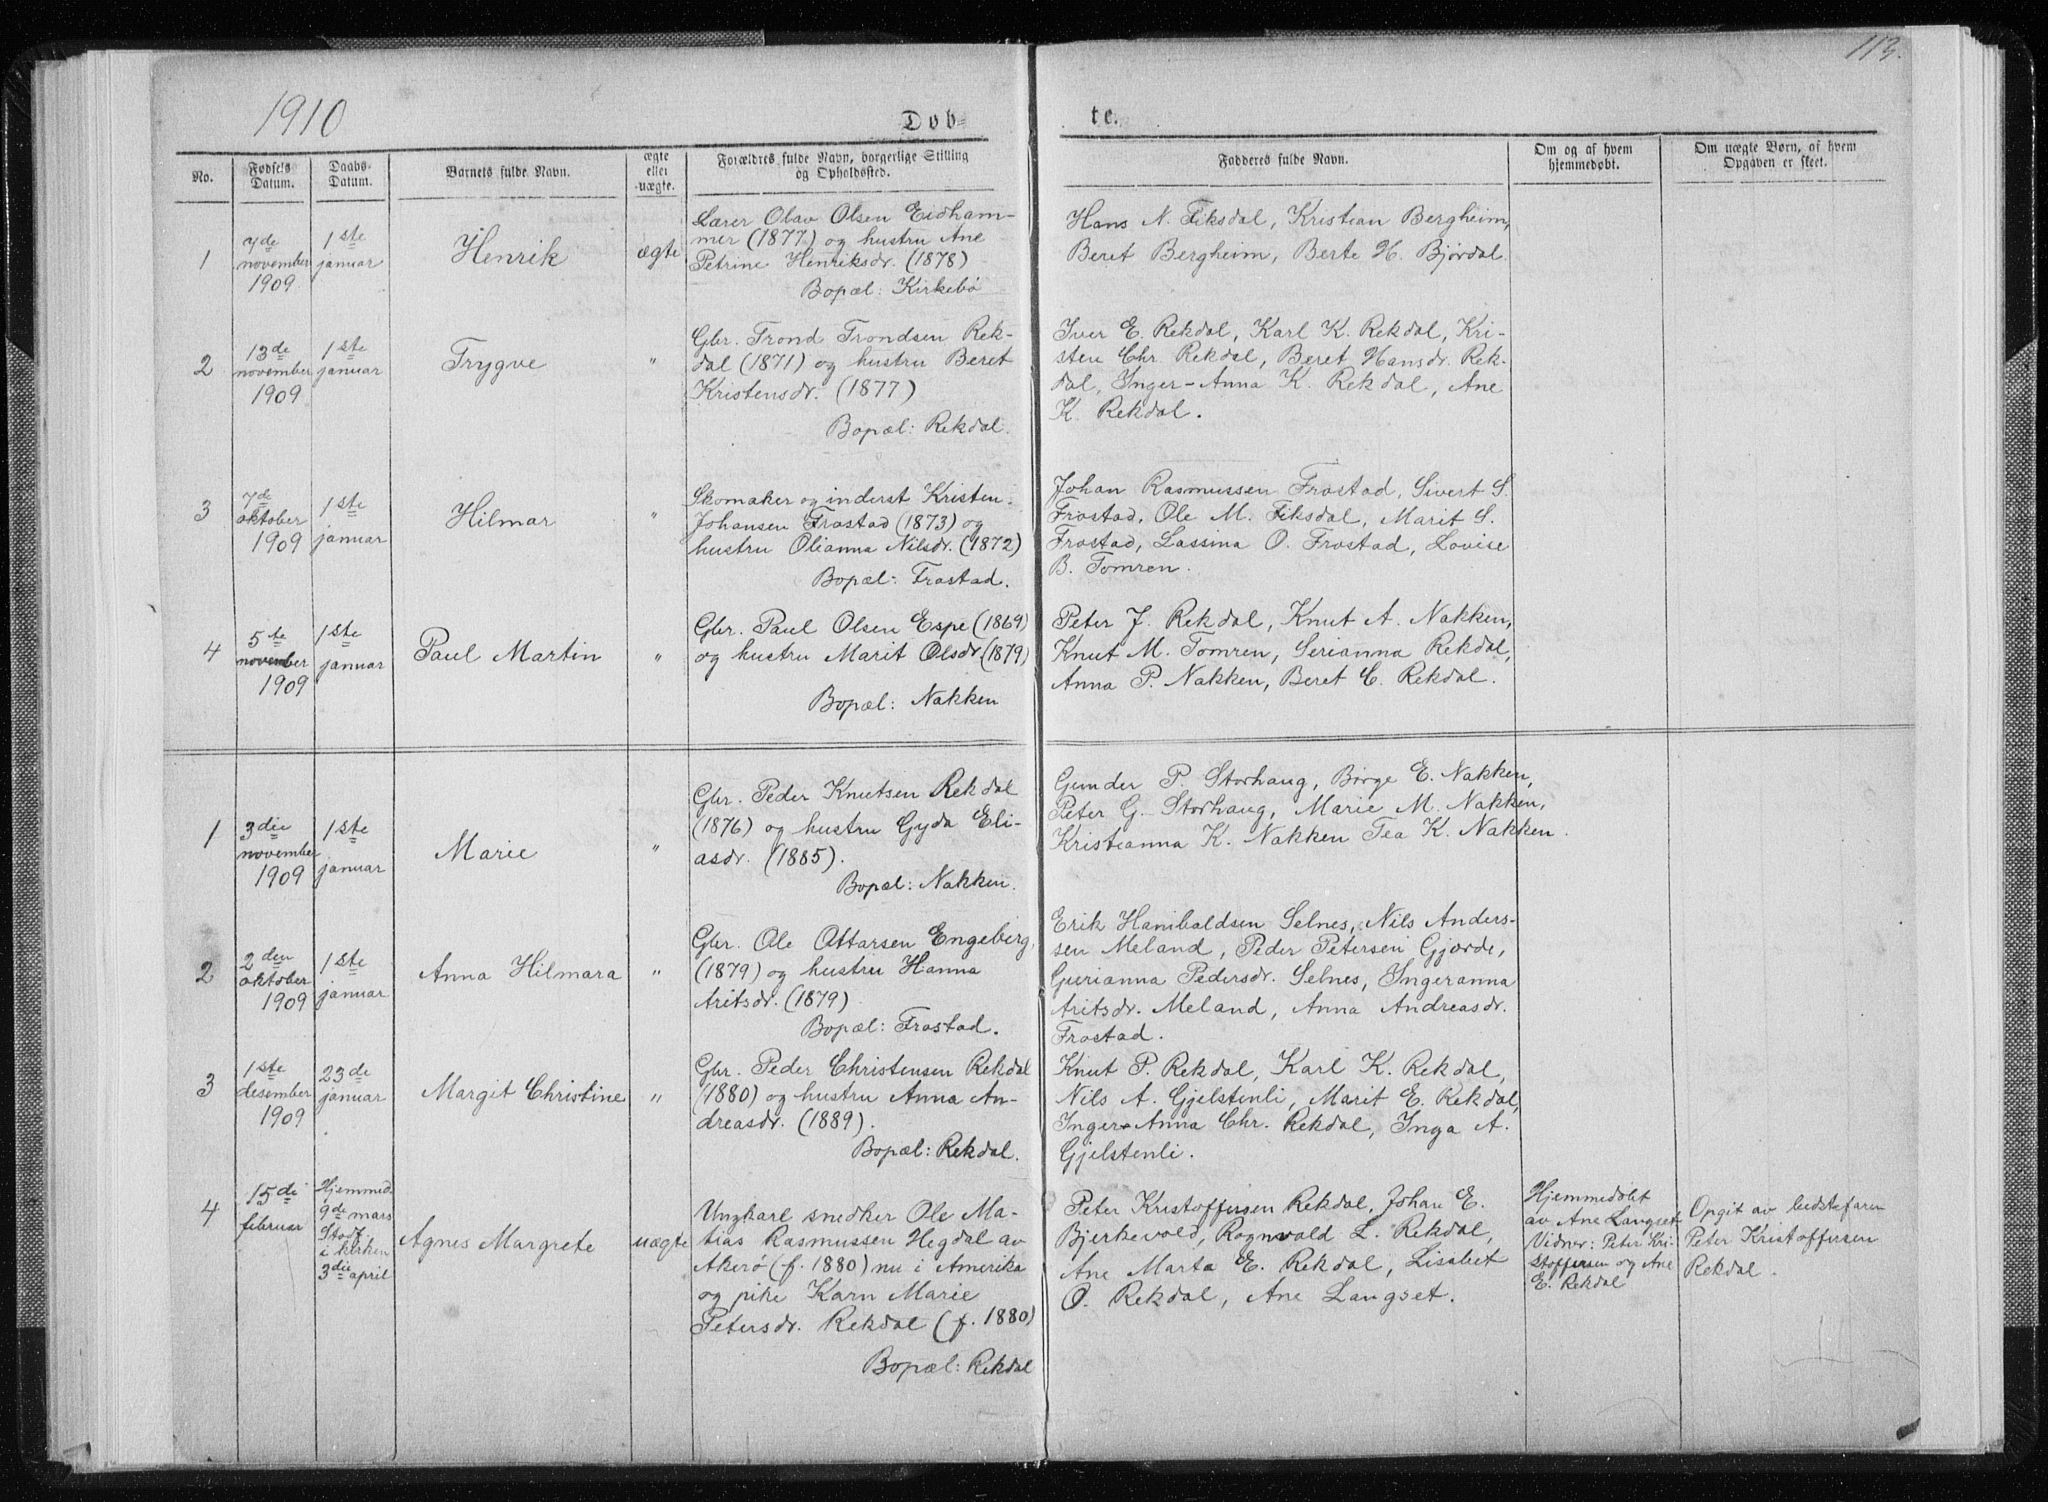 113.
1910
Døb-
te.
No.
Fødsels
Datum.
Daabs-
Datum.
Barnets fulde Navn.
ægte
eller
uægte.
Forældres fulde Navn, borgerlige Stilling
og Opholdssted.
Fadderes fulde Navn.
Om og af hvem
hjemmedøbt.
Om uægte Børn, af hvem
Opgaven er skeet.
1
7de
november
1909
1ste
januar
Henrik
ægte
Lærer Olav Olsen Eidham-
mer (1877) og hustru Ane
Petrine Henriksdr. (1878)
Bopæl: Kirkebø
Hans N. Fiksdal, Kristian Bergheim,
Beret Bergheim, Berte H. Bjørdal.
2
13de
november
1909
1ste
januar
Trygve
"
Gbr. Trond Trondsen Rek-
dal (1871) og hustru Beret
Kristensdr. (1877)
Bopæl: Rekdal.
Iver E. Rekdal, Karl K. Rekdal, Kri-
sten Chr. Rekdal, Beret Hansdr. Rek-
dal, Inger-Anna K. Rekdal, Ane
K. Rekdal.
3
7de
oktober
1909
1ste
januar
Hilmar
"
Skomaker og inderst Kristen
Johansen Frostad (1873) og
hustru Olianna Nilsdr. (1872)
Bopæl: Frostad.
Johan Rasmussen Frostad, Sivert S.
Frostad, Ole M. Fiksdal, Marit S.
Frostad, Lassina O. Frostad, Lovise
B. Tomren.
4
5te
november
1909
1ste
januar
Paul Martin
"
Gbr. Paul Olsen Espe (1869)
og hustru Marit Olsdr. (1879)
Bopæl: Nakken
Peter J. Rekdal, Knut A. Nakken,
Knut M. Tomren, Serianna Rekdal,
Anna P. Nakken, Beret C. Rekdal.
1
3die
november
1909
1ste
januar
Marie
"
Gbr. Peder Knutsen Rekdal
(1876) og hustru Gyda Eli-
asdr. (1885).
Bopæl: Nakken.
Gunder P Storhaug, Børge E. Nakken,
Peter G. Storhaug, Marie M. Nakken,
Kristianna K. Nakken Tea K. Nakken.
2
2den
oktober
1909
1ste
januar
Anna Hilmara
"
Gbr. Ole Ottarsen Engeberg,
(1879) og hustru Hanna
Aritsdr. (1879).
Bopæl: Frostad.
Erik Hanibaldsen Selnes, Nils Anders-
sen Meland, Peder Petersen Gjørde,
Gurianna Pedersdr. Selnes, Ingeranna
Aritsdr. Meland, Anna Andreasdr.
Frostad.
3
1ste
desember
1909
23de
januar
Margit Christine
"
Gbr. Peder Christensen Rekdal
(1880) og hustru Anna An-
dreasdr. (1889).
Bopæl: Rekdal.
Knut P. Rekdal, Karl K. Rekdal,
Nils A. Gjelstenli, Marit E. Rekdal,
Inger-Anna Chr. Rekdal, Inga A.
Gjelstenli.
4
15de
februar
Hjemmed.
9de mars
Stadf.
i kirken
3die april
Agnes Margrete
uægte
Ungkarl snedker Ole Ma-
tias Rasmussen Hegdal av
Akerø (f. 1880) nu i Amerika
og pike Karn Marie
Petersdr. Rekdal (f. 1880)
Bopæl: Rekdal
Peter Kristoffersen Rekdal, Johan E.
Bjerkevold, Rognvald L. Rekdal,
Ane Marta E. Rekdal, Lisabet
O. Rekdal, Ane Langset.
Hjemmedøbt
av Ane Langset
Vidner: Peter Kri-
stoffersen og Ane
E. Rekdal
Opgit av bedstefaren
Peter Kristoffersen
Rekdal.